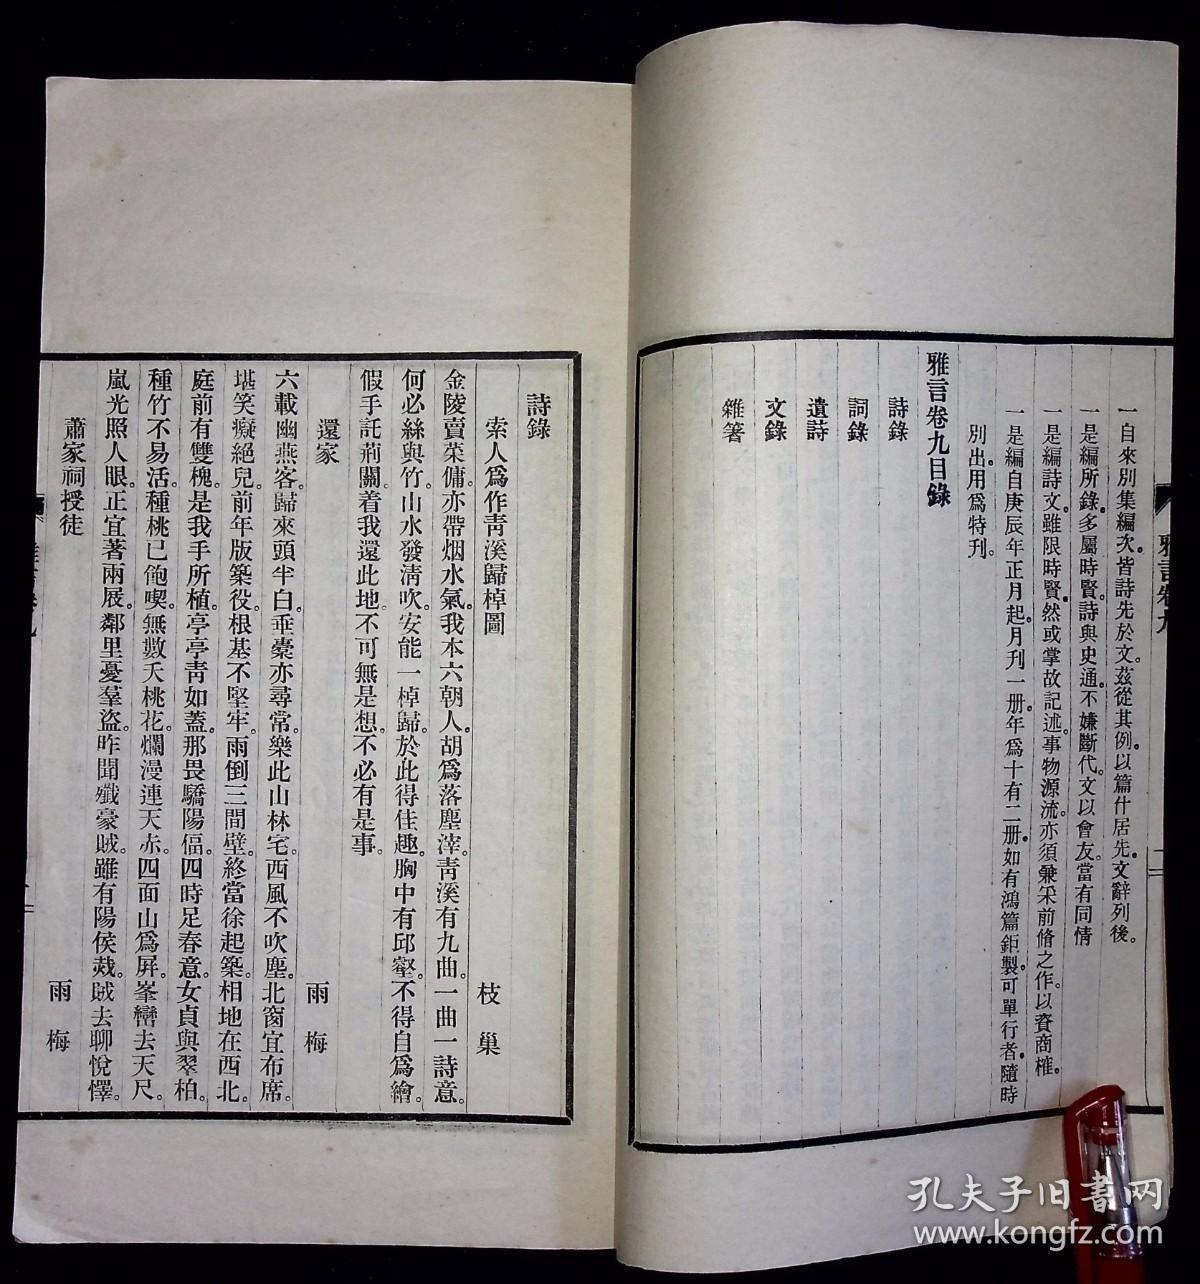 一自來別集編次。皆詩先於文。茲從其例。以篇什居先。文辭列後。
一是編所錄。多屬時賢。詩與史通。不嫌斷代。文以會友。當有同情
一是編詩文。雖限時賢。然或掌故記述。事物源流。亦須兼采前脩之作。以資商榷。
一是編自庚辰年正月起。月刊一册。年爲十有二册。如有鴻篇鉅製。可單行者。隨時
別出。用爲特刊。
雅言卷九目錄
詩錄
詞錄
遺詩
文錄
雜箸
雅言卷九
二
詩錄
索人爲作靑溪歸棹圖
枝巢
金陵賣菜傭。亦帶烟水氣。我本六朝人。胡爲落塵滓。靑溪有九曲。一曲一詩意。
何必絲與竹。山水發淸吹。安能一棹歸。於此得佳趣。胸中有邱壑。不得自爲繪。
假手託荊關。着我還此地。不可無是想。不必有是事。
還家
雨梅
六載幽燕客。歸來頭半白。垂橐亦尋常。樂此山林宅。西風不吹塵。北窗宜布席。
堪笑癡絕兒。前年版築役。根基不堅牢。雨倒三間壁。終當徐起築。相地在西北。
庭前有雙槐。是我手所植。亭亭靑如蓋。那畏驕陽偪。四時足春意。女貞與翠柏。
種竹不易活。種桃已飽喫。無數夭桃花。爛漫連天赤。四面山爲屏。峯巒去天尺。
嵐光照人眼。正宜著兩屐。鄰里憂羣盜。昨聞殲豪賊。雖有陽侯烖。賊去聊悅懌。
蕭家祠授徒
雨梅
孔夫子旧書网
www.kongfz.com